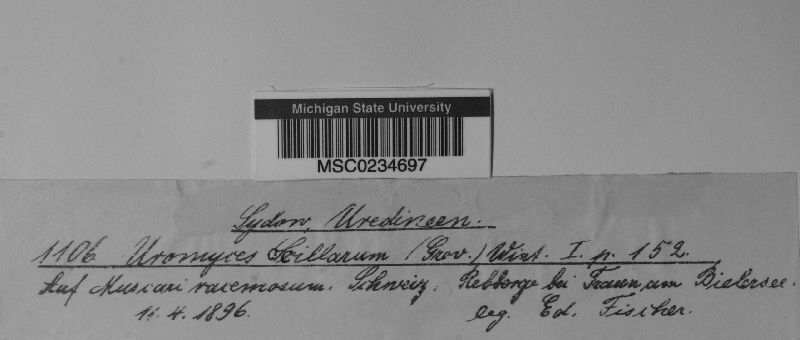 Michigan State University
MSC0234697
Sydow, Uredineen.
1106. Uromyces Scillarum (Grev.) Wint. I. p. 152.
Auf Muscari racemosum. Schweiz. Rebberge bei Twann am Bielersee.
4. 1896. leg. Ed. Fischer.